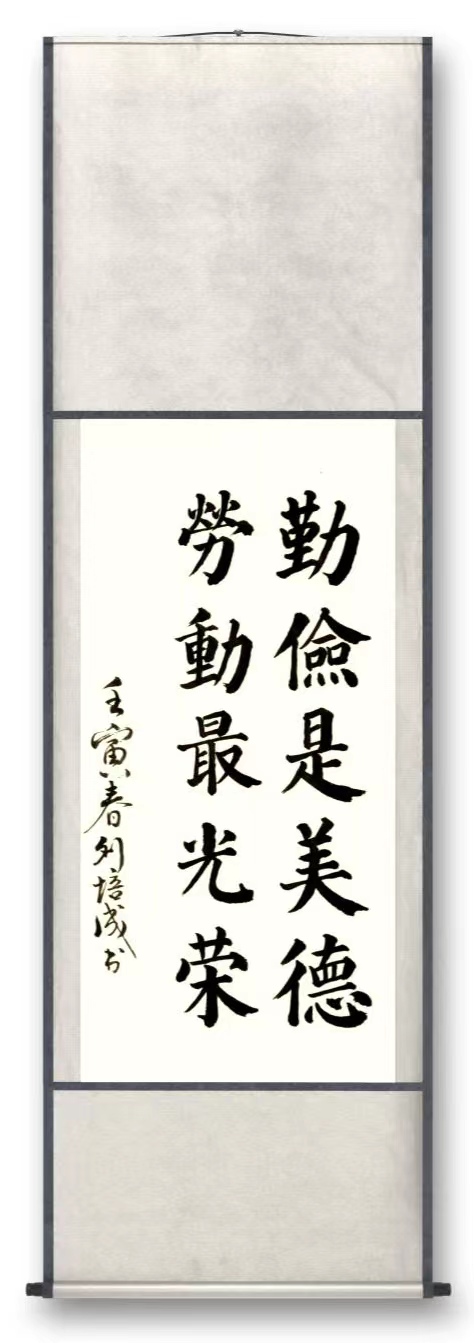 勤儉是美德
勞動最光荣
壬寅春列培成书